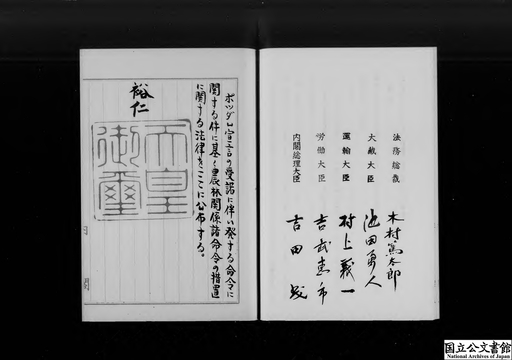 法務総裁 木村篤太郎
大蔵大臣 池田勇人
運輸大臣 村上義一
労働大臣 吉武恵市
内閣総理大臣 吉田茂
ポツダム宣言の受諾に伴い発する命令に
関する件に基く農林関係諸命令の措置
に関する法律をここに公布する。
裕仁
天皇
御璽
国立公文書館
National Archives of Japan